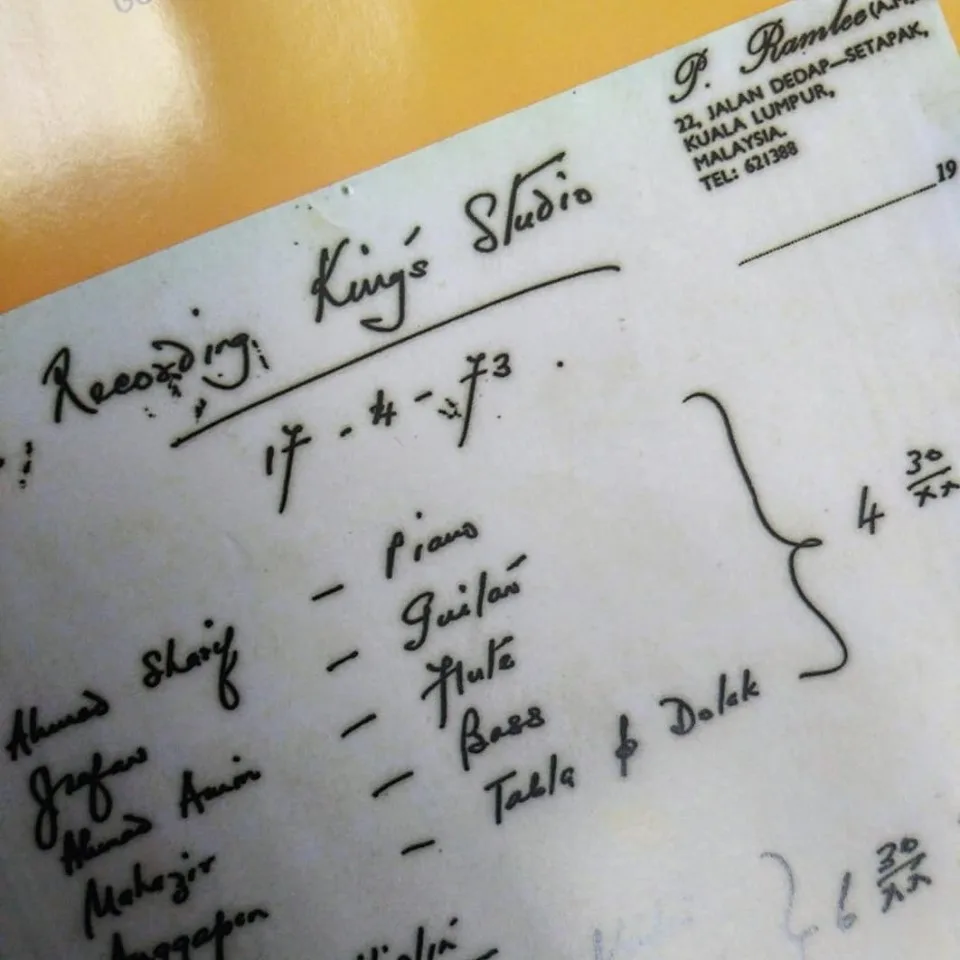 P. Ramlee (A.M.
22, JALAN DEDAP—SETAPAK,
KUALA LUMPUR,
MALAYSIA.
TEL: 621388
19
Recording King's Studio
17 - 4 - 73.
Ahmad Sharif - Piano
Jaafar - Guitar
Ahmad Amin - Flute
Mahazir - Bass
Anggapan - Tabla & Dolak
4 30/xx
Violin
6 30/xx